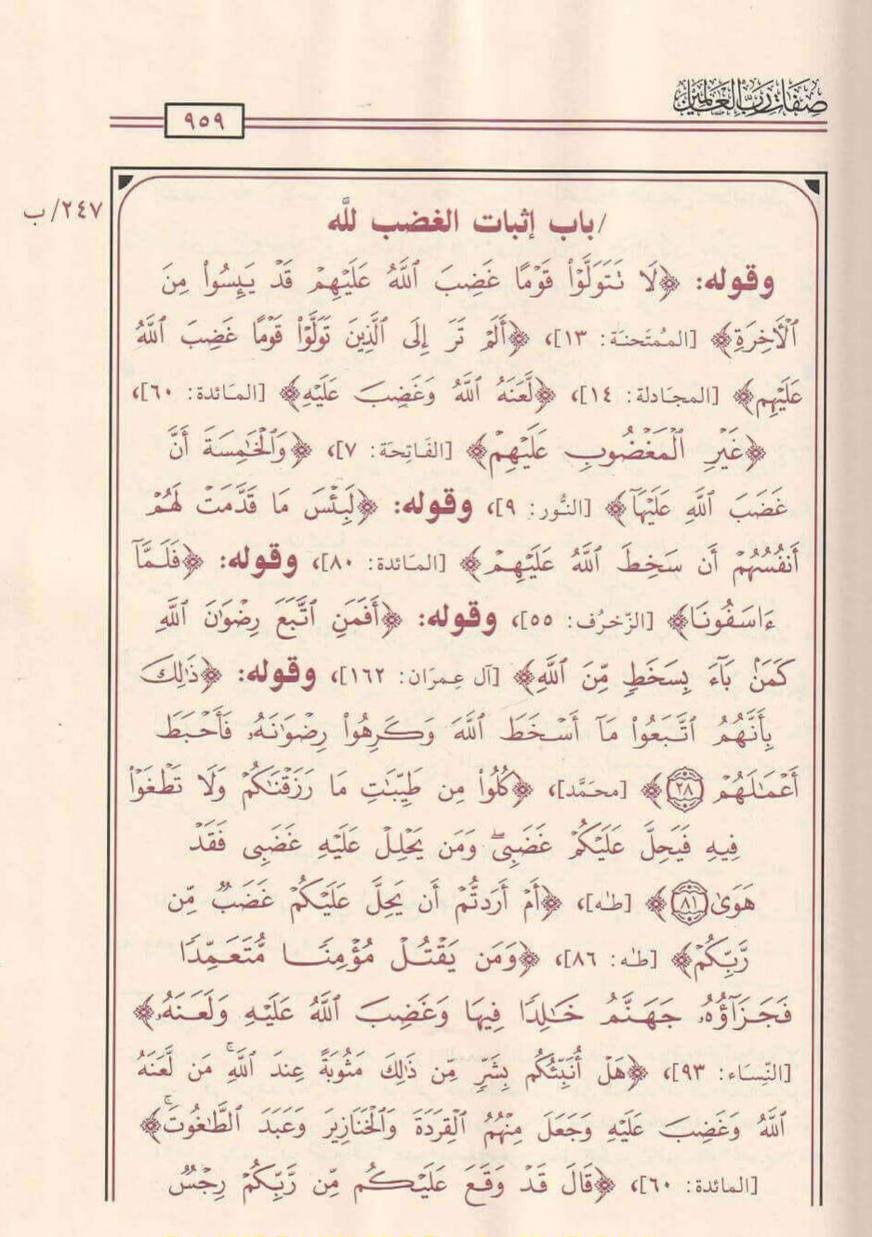 صفات رب العالمين
٩٥٩
٢٤٧/ب
/باب إثبات الغضب لله
وقوله: ﴿لَا تَتَوَلَّوْا۟ قَوْمًا غَضِبَ ٱللَّهُ عَلَيْهِمْ قَدْ يَئِسُوا۟ مِنَ
ٱلْأَخِرَةِ﴾ [الممتَحنَة: ١٣]، ﴿أَلَمْ تَرَ إِلَى الَّذِينَ تَوَلَّوْا۟ قَوْمًا غَضِبَ ٱللَّهُ
عَلَيْهِم﴾ [المجَادلة: ١٤]، ﴿لَّعَنَهُ ٱللَّهُ وَغَضِبَ عَلَيْهِ﴾ [المَائدة: ٦٠]،
﴿غَيْرِ الْمَغْضُوبِ عَلَيْهِمْ﴾ [الفَاتِحَة: ٧]، ﴿وَٱلْخَٰمِسَةَ أَنَّ
غَضَبَ ٱللَّهِ عَلَيْهَآ﴾ [النُّور: ٩]، وقوله: ﴿لَبِئْسَ مَا قَدَّمَتْ لَهُمْ
أَنفُسُهُمْ أَن سَخِطَ ٱللَّهُ عَلَيْهِمْ﴾ [المَائدة: ٨٠]، وقوله: ﴿فَلَمَّآ
ءَاسَفُونَا﴾ [الزّخرُف: ٥٥]، وقوله: ﴿أَفَمَنِ ٱتَّبَعَ رِضْوَٰنَ ٱللَّهِ
كَمَنۢ بَآءَ بِسَخَطٍ مِّنَ ٱللَّهِ﴾ [آل عِمرَان: ١٦٢]، وقوله: ﴿ذَٰلِكَ
بِأَنَّهُمُ ٱتَّبَعُوا۟ مَآ أَسْخَطَ ٱللَّهَ وَكَرِهُوا۟ رِضْوَٰنَهُۥ فَأَحْبَطَ
أَعْمَٰلَهُمْ ٢٨﴾ [محَمَّد]، ﴿كُلُوا۟ مِن طَيِّبَٰتِ مَا رَزَقْنَٰكُمْ وَلَا تَطْغَوْا۟
فِيهِ فَيَحِلَّ عَلَيْكُمْ غَضَبِى ۖ وَمَن يَحْلِلْ عَلَيْهِ غَضَبِى فَقَدْ
هَوَىٰ ٨١﴾ [طٰه]، ﴿أَمْ أَرَدتُّمْ أَن يَحِلَّ عَلَيْكُمْ غَضَبٌ مِّن
رَّبِّكُمْ﴾ [طٰه: ٨٦]، ﴿وَمَن يَقْتُلْ مُؤْمِنًا مُّتَعَمِّدًا
فَجَزَآؤُهُۥ جَهَنَّمُ خَٰلِدًا فِيهَا وَغَضِبَ ٱللَّهُ عَلَيْهِ وَلَعَنَهُۥ﴾
[النِّسَاء: ٩٣]، ﴿هَلْ أُنَبِّئُكُم بِشَرٍّ مِّن ذَٰلِكَ مَثُوبَةً عِندَ ٱللَّهِ ۚ مَن لَّعَنَهُ
ٱللَّهُ وَغَضِبَ عَلَيْهِ وَجَعَلَ مِنْهُمُ ٱلْقِرَدَةَ وَٱلْخَنَازِيرَ وَعَبَدَ ٱلطَّٰغُوتَ ۚ﴾
[المائدة: ٦٠]، ﴿قَالَ قَدْ وَقَعَ عَلَيْكُم مِّن رَّبِّكُمْ رِجْسٌ